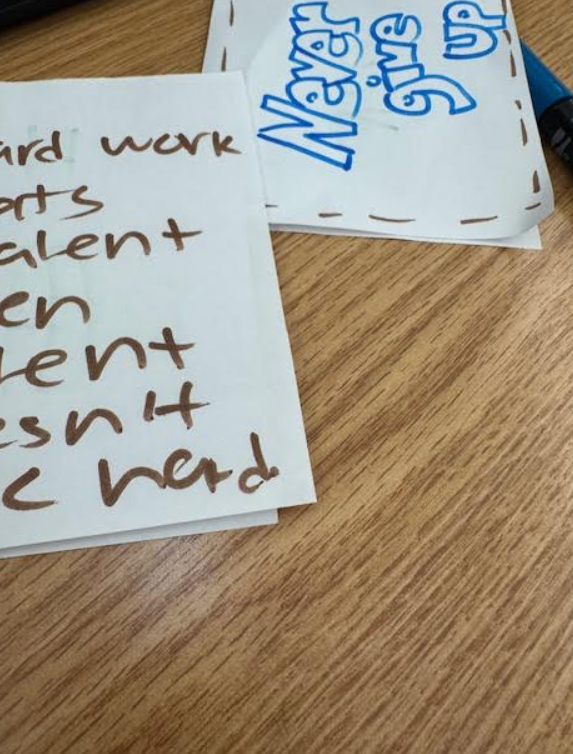 ard work
orts
alent
en
lent
esn't
c hard
Never
give
up